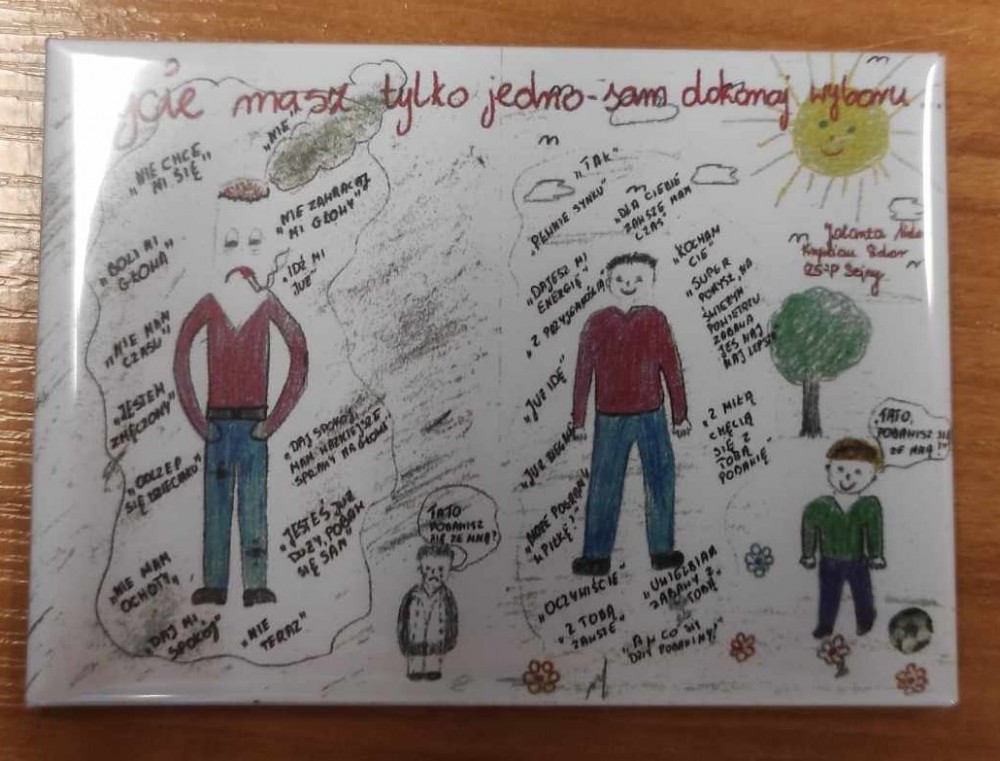 życie masz tylko jedno - sam dokonaj wyboru
„NIE"
„NIE CHCE
MI SIĘ"
„NIE ZAWRACAJ
MI GŁOWY"
„BOLI MI
GŁOWA"
„IDŹ MI
JUŻ"
„NIE MAM
CZASU"
„JESTEM
ZMĘCZONY"
„ODCZEP
SIĘ DZIECIAKU"
„DAJ SPOKÓJ,
MAM WAŻNIEJSZE
SPRAWY NA GŁOWIE"
„JESTEŚ JUŻ
DUŻY, POBAW
SIĘ SAM"
„NIE MAM
OCHOTY"
„DAJ MI
SPOKÓJ"
„NIE
TERAZ"
TATO
POBAWISZ
SIĘ ZE MNĄ?
„TAK"
„PEWNIE SYNKU"
„DLA CIEBIE
ZAWSZE MAM
CZAS"
„DAJESZ MI
ENERGIĘ"
„KOCHAM
CIĘ"
„Z PRZYJEMNOŚCIĄ"
„SUPER
POMYSŁ, NA
ŚWIEŻYM
POWIETRZU
ZABAWA
JES NAJ
NAJ LEPSZA"
„JUŻ IDĘ"
„JUŻ BIEGNĘ"
„Z MIŁĄ
CHĘCIĄ
SIĘ Z
TOBĄ
POBAWIĘ
„MOŻE POGRAMY
W PIŁKĘ?"
„OCZYWIŚCIE"
„UWIELBIAM
ZABAWY Z
TOBĄ"
„Z TOBĄ
ZAWSZE"
„A W CO SIĘ
DZIŚ POBAWIMY?"
Jolanta
OSiP
„TATO,
POBAWISZ SIĘ
ZE MNĄ?"